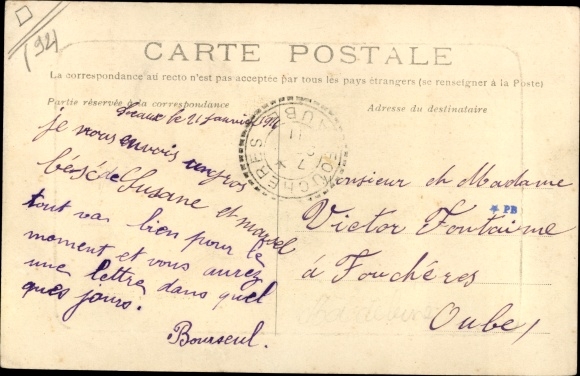 192
CARTE POSTALE
La correspondance au recto n'est pas acceptée par tous les pays étrangers (se renseigner à la Poste)
Partie réservée à la correspondance
Adresse du destinataire
Sceaux le 21 janvier
je vous envois un gros
bésé de Susane et marcel
tout va bien pour le
moment et vous aurez
une lettre dans quel
ques jours.
Bourseul.
FOUCHÈRES
AUBE
Monsieur et Madame
Victor Fontaine
* PB
à Fouchères
Oube